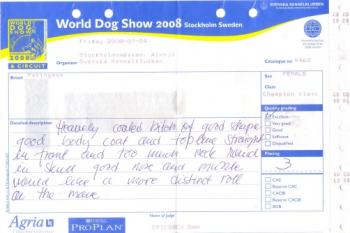 WORLD DOG SHOW
2008
6 CIRCUIT
World Dog Show 2008 Stockholm Sweden
SVENSKA KENNELKLUBBEN
Friday 2008-07-04
Stockholmsmässan, Älvsjö
Organizer Svenska Kennelklubben
Catalogue no
Breed
Sex FEMALE
Class Champion class
Quality grading
Excellent
Very good
Good
Sufficient
Disqualified
Detailed description Heavily coated bitch of good shape
good body coat and topline straight
in front and too much neck round
in skull good nose and muzzle
would like a more distinct roll
on the move
Placing
3
CAC
Reserve CAC
CACIB
Reserve CACIB
BOB
Agria
PURINA
PRO PLAN
Name of judge